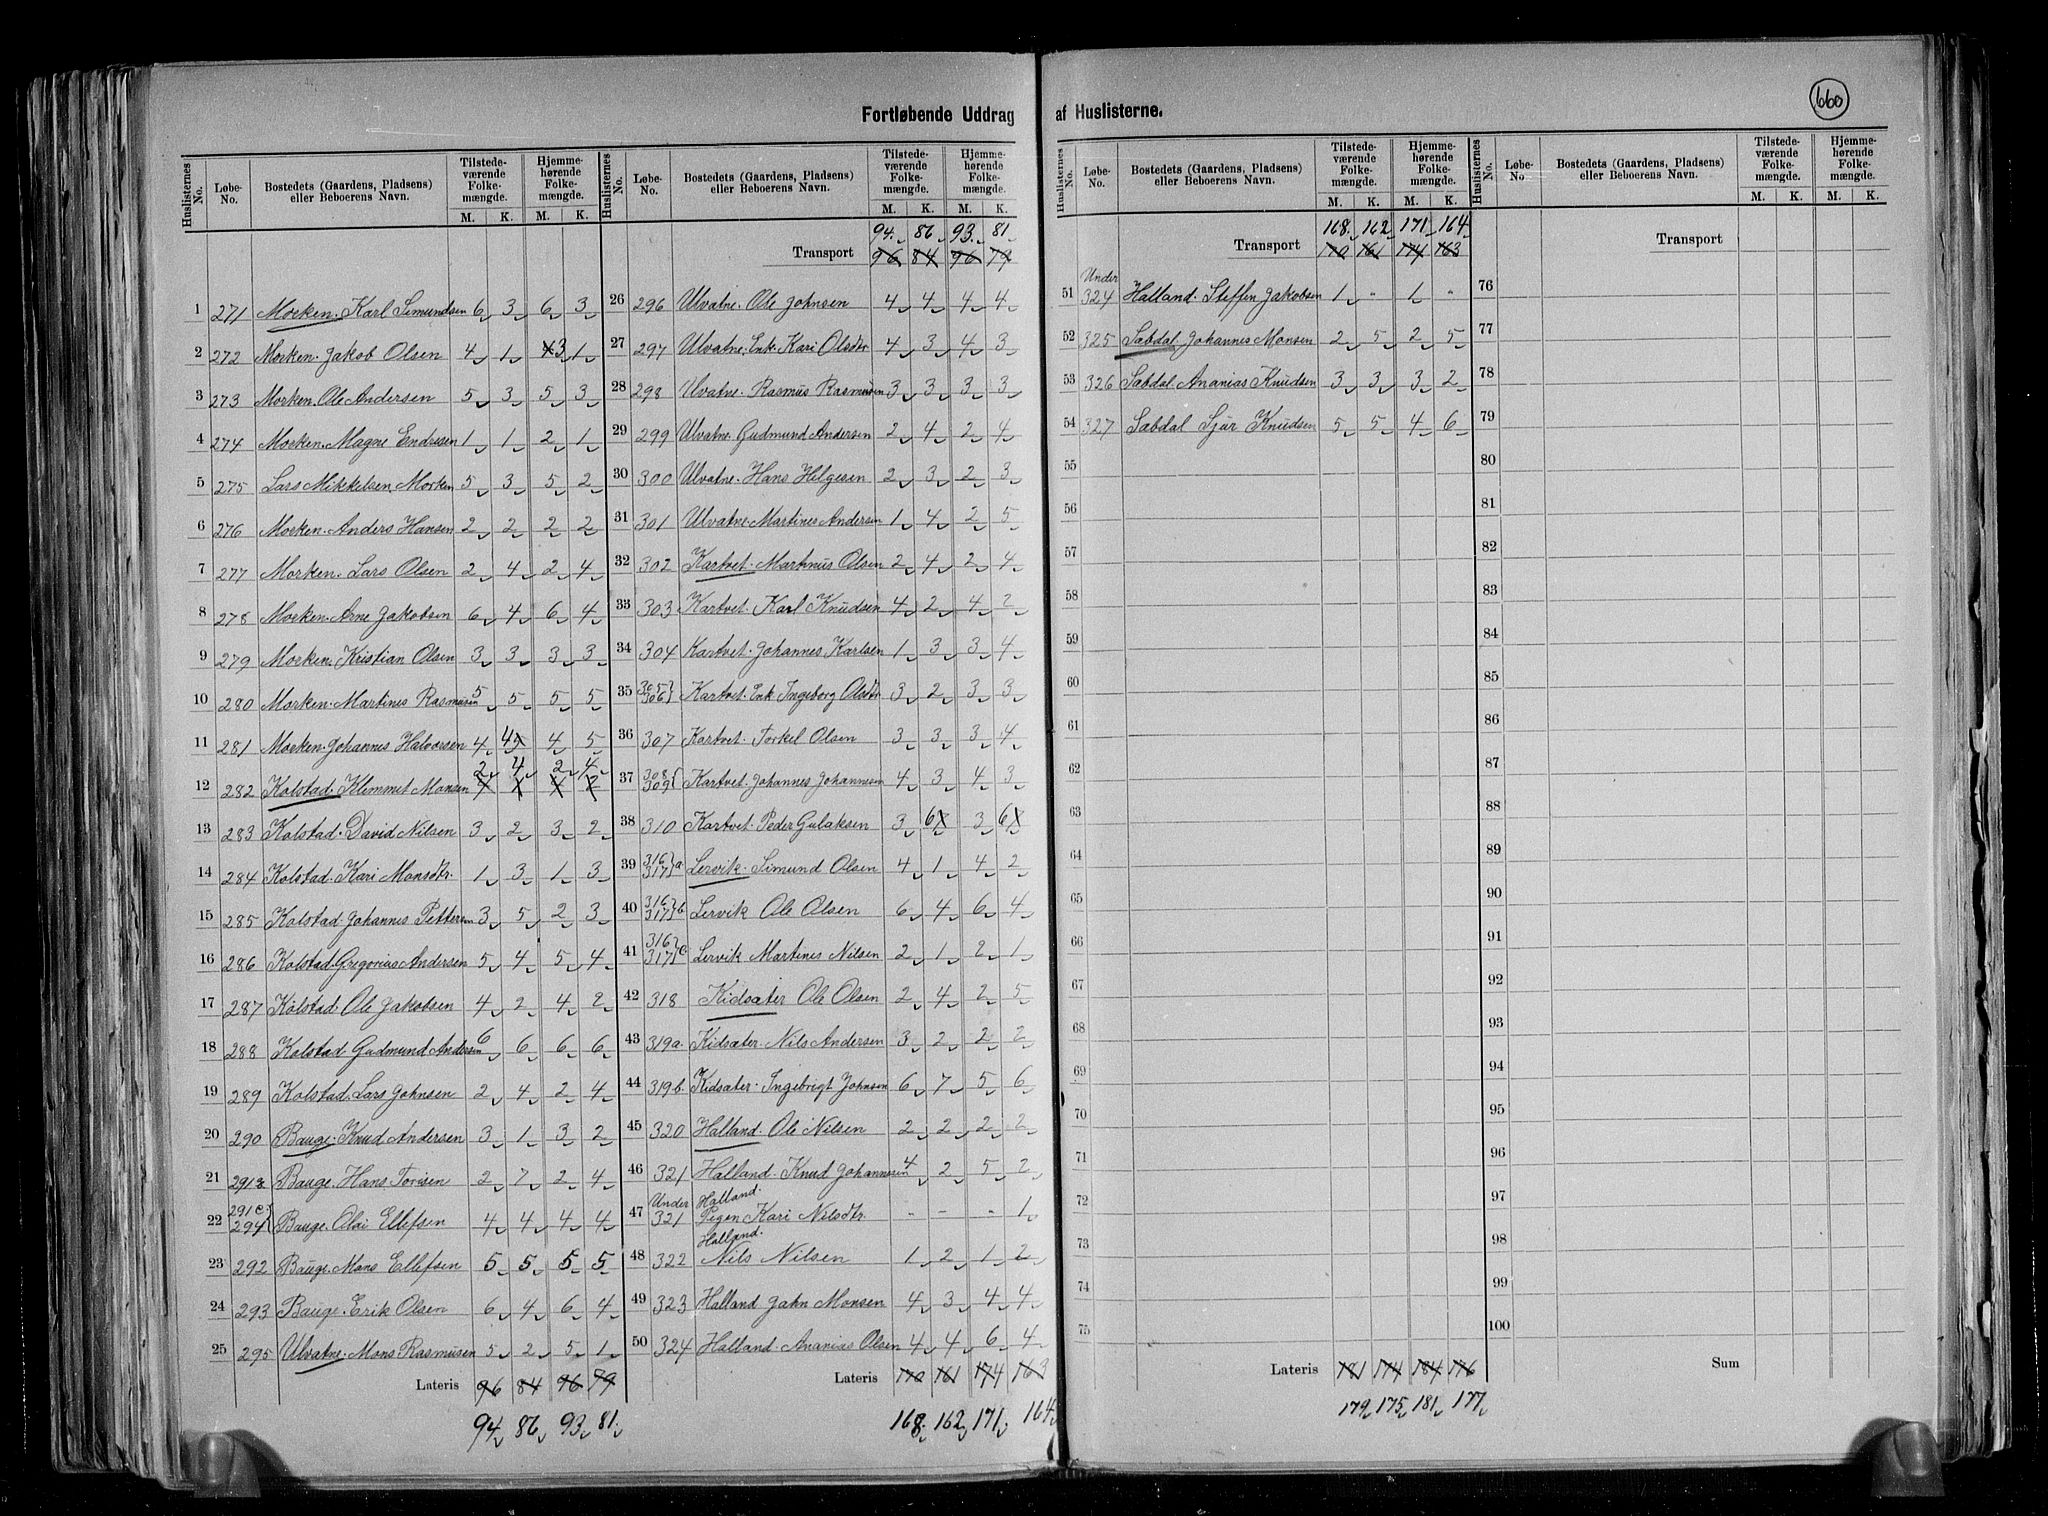 660
Fortløbende Uddrag af Huslisterne.
Huslisternes No. Løbe-No. Bostedets (Gaardens, Pladsens) eller Beboerens Navn. Tilstedeværende Folkemængde. M. K. Hjemmehørende Folkemængde. M. K.
1 271 Morken. Karl Simundsen 6 3 6 3
2 272 Morken. Jakob Olsen 4 1 3 1
3 273 Morken. Ole Andersen 5 3 5 3
4 274 Morken. Magne Endresen 1 1 2 1
5 275 Lars Mikkelsen, Morken 5 3 5 2
6 276 Morken. Anders Hansen 2 2 2 2
7 277 Morken. Lars Olsen 2 4 2 4
8 278 Morken. Arne Jakobsen 6 4 6 4
9 279 Morken. Kristian Olsen 3 3 3 3
10 280 Morken. Martines Rasmusen 5 5 5 5
11 281 Morken. Johannes Halvorsen 4 4 4 5
12 282 Kolstad. Klemmet Monsen 2 4 2 4
13 283 Kolstad. David Nilsen 3 2 3 2
14 284 Kolstad. Kari Monsdtr. 1 3 1 3
15 285 Kolstad Johannes Pettersen 3 5 2 3
16 286 Kolstad. Gregorius Andersen 5 4 5 4
17 287 Kolstad. Ole Jakobsen 4 2 4 2
18 288 Kolstad Gudmund Andersen 6 6 6 6
19 289 Kolstad. Lars Johnsen 2 4 2 4
20 290 Bauge. Knud Andersen 3 1 3 2
21 291 Bauge. Hans Torisen 2 7 2 4
22 291c. 294 Bauge. Olai Ellefsen 4 4 4 4
23 292 Bauge. Mons Ellefsen 5 5 5 5
24 293 Bauge. Erik Olsen 6 4 6 4
25 295 Ulvatne. Mons Rasmusen 5 2 5 1
Lateris 96 84 96 79
94 86 93 81
Huslisternes No. Løbe-No. Bostedets (Gaardens, Pladsens) eller Beboerens Navn. Tilstedeværende Folkemængde. M. K. Hjemmehørende Folkemængde. M. K.
94 86 93 81
Transport 96 84 96 79
26 296 Ulvatne. Ole Johnsen 4 4 4 4
27 297 Ulvatne. Enk. Kari Olsdtr 4 3 4 3
28 298 Ulvatne. Rasmus Rasmusen 3 3 3 3
29 299 Ulvatne. Gudmund Andersen 2 4 2 4
30 300 Ulvatne. Hans Helgesen 2 3 2 3
31 301 Ulvatne. Martines Andersen 1 4 2 5
32 302 Kartvet. Martinus Olsen 2 4 2 4
33 303 Kartvet. Karl Knudsen 4 2 4 2
34 304 Kartvet. Johannes Karlsen 1 3 3 4
35 305 306 Kartvet. Enk. Ingeborg Olsdtr 3 2 3 3
36 307 Kartvet. Torkel Olsen 3 3 3 4
37 308 309 Kartvet. Johannes Johannesen 4 3 4 3
38 310 Kartvet. Peder Gulaksen 3 6 3 6
39 316 317 a Lervik. Simund Olsen 4 1 4 2
40 316 317 b Lervik Ole Olsen 6 4 6 4
41 316 317 c Lervik Martines Nilsen 2 1 2 1
42 318 Kidsæter Ole Olsen 2 4 2 5
43 319a. Kidsæter. Nils Andersen 3 2 2 2
44 319b. Kidsæter. Ingebrigt Johnsen 6 7 5 6
45 320 Halland. Ole Nilsen 2 2 2 2
46 321 Halland. Knud Johannesen 4 2 5 2
47 Under 321 Halland. Pigen Kari Nilsdtr. - - - 1
48 322 Halland. Nils Nilsen 1 2 1 2
49 323 Halland John Monsen 4 3 4 4
50 324 Halland Ananias Olsen 4 4 6 4
Lateris 170 161 174 163
168 162 171 164
Huslisternes No. Løbe-No. Bostedets (Gaardens, Pladsens) eller Beboerens Navn. Tilstedeværende Folkemængde. M. K. Hjemmehørende Folkemængde. M. K.
168 162 171 164
Transport 170 161 174 163
51 Under 324 Halland. Steffen Jakobsen 1 " 1 "
52 325 Sabdal Johannes Monsen 2 5 2 5
53 326 Sabdal Ananias Knudsen 3 3 3 2
54 327 Sabdal Sjur Knudsen 5 5 4 6
55
56
57
58
59
60
61
62
63
64
65
66
67
68
69
70
71
72
73
74
75
Lateris 181 174 184 176
179 175 181 177
Huslisternes No. Løbe-No. Bostedets (Gaardens, Pladsens) eller Beboerens Navn. Tilstedeværende Folkemængde. M. K. Hjemmehørende Folkemængde. M. K.
Transport
76
77
78
79
80
81
82
83
84
85
86
87
88
89
90
91
92
93
94
95
96
97
98
99
100
Sum